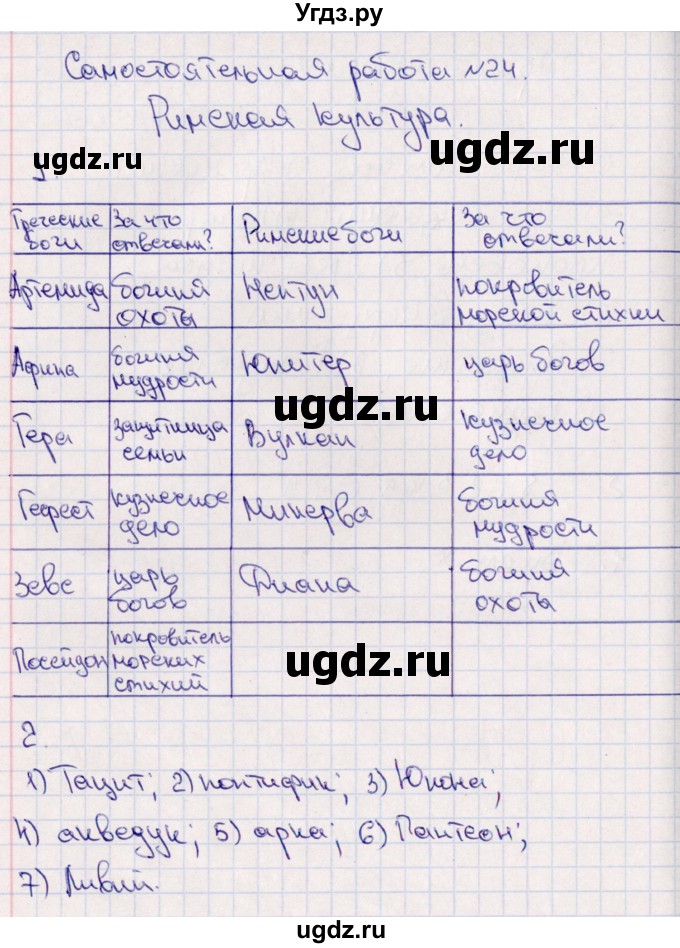 Угдз.ру
Самостоятельная работа №24.
Римская культура.
ugdz.ru
ugdz.ru
1.
Греческие боги | За что отвечали? | Римские боги | За что отвечали?
Артемида | богиня охоты | Нептун | покровитель морской стихии
Афина | богиня мудрости | Юпитер | царь богов
ugdz.ru
Гера | защитница семьи | Вулкан | кузнечное дело
Гефест | кузнечное дело | Минерва | богиня мудрости
Зевс | царь богов | Диана | богиня охоты
Посейдон | покровитель морских стихий
ugdz.ru
2.
1) Тацит; 2) понтифик; 3) Юнона;
4) акведук; 5) арка; 6) Пантеон;
7) Ливий.
ugdz.ru